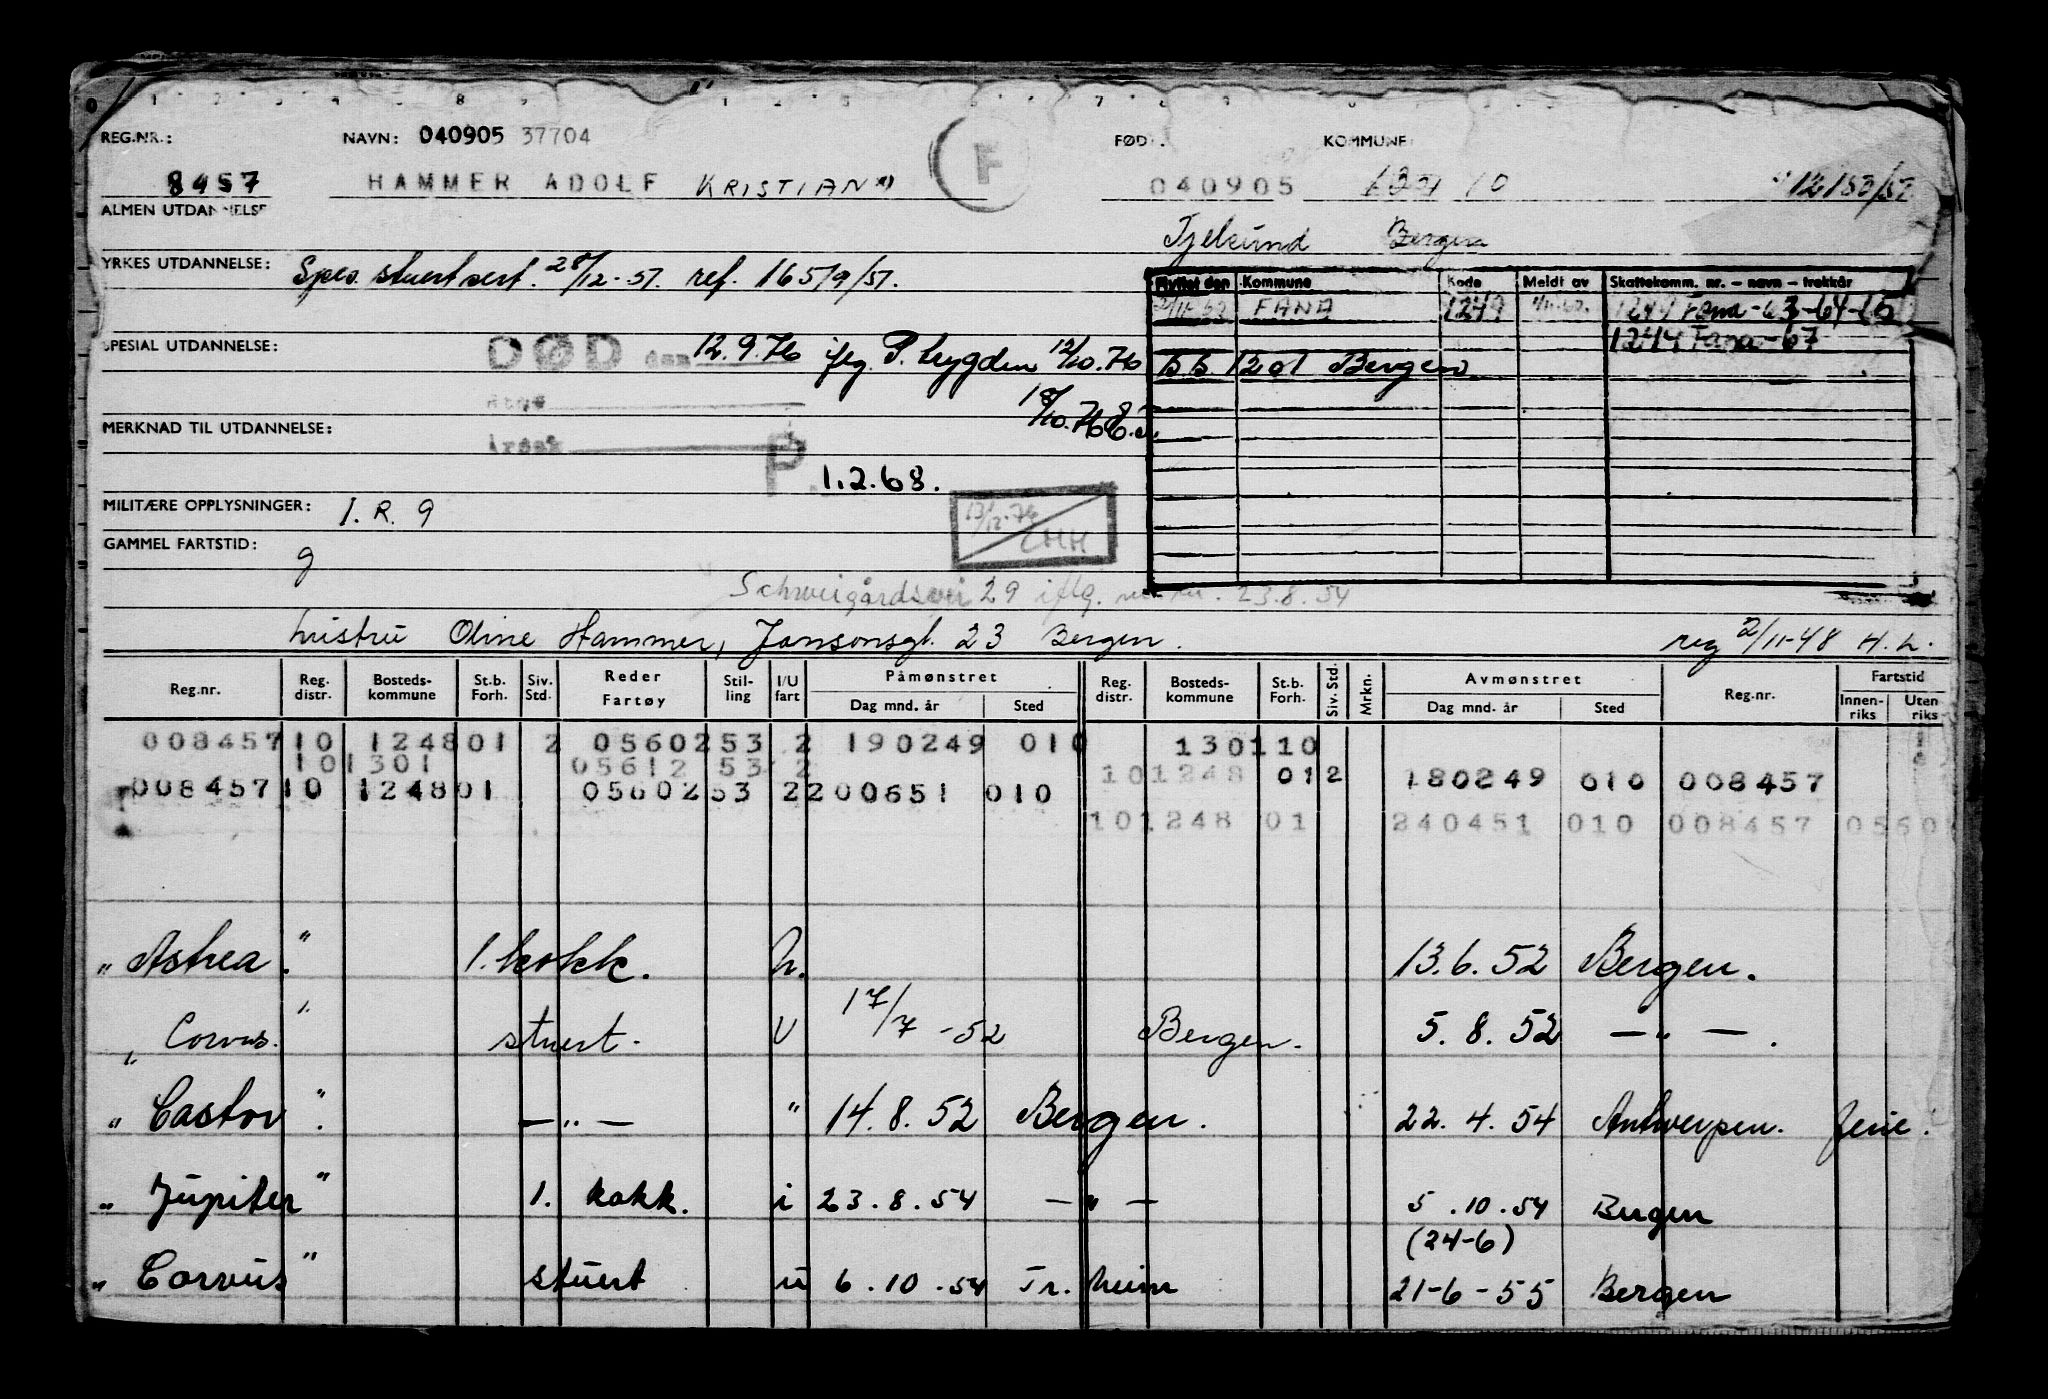 REG.NR.: NAVN: 040905 37704 FØD KOMMUNE
8457 HAMMER ADOLF KRISTIAN F 040905 10
ALMEN UTDANNELSE
Bergen
YRKES UTDANNELSE: Spes. stuertsert. 28/12-51. ref. 1651/9/51.
Flyttet den Kommune Kode Meldt av Skattekomm. nr. – navn – trekkår
FANA 1249 Fana-63-64-65
1244 Fana-67
SPESIAL UTDANNELSE: DØD den 12.9.76 iflg. P. Lygden 12/10.76 1201 Bergen
18/10.76
MERKNAD TIL UTDANNELSE:
P. 1.2.68.
MILITÆRE OPPLYSNINGER: I. R. 9
13/12.76 CHH
GAMMEL FARTSTID: 9
Schweigårdsvei 29 iflg. 23.8.54
hustru Oline Hammer, Jansonsgt. 23 Bergen. reg 2/11-48 H. L.
Reg.nr. Reg. distr. Bosteds-kommune St.b. Forh. Siv. Std. Reder Fartøy Stil-ling I/U fart Påmønstret Dag mnd. år Sted Reg. distr. Bosteds-kommune St.b. Forh. Siv. Std. Mrkn. Avmønstret Dag mnd. år Sted Reg.nr. Fartstid Innen-riks Uten riks
008457 10 1248 01 2 05602 53 2 190249 010 130110
101301 05612 53 2
101248 01 2 180249 010 008457
008457 10 1248 01 05602 53 2 200651 010
101248 01 240451 010 008457 0560
„ Astrea " 1. kokk. h. 13.6.52 Bergen.
„ Corvus " stuert. U 17/7-52 Bergen. 5.8.52 — " —.
„ Castor " — " — " 14.8.52 Bergen. 22.4.54 Antwerpen. ferie.
„ Jupiter " 1. kokk. i 23.8.54 — " — 5.10.54 Bergen
(24-6)
„ Corvus " stuert u 6.10.54 Tr.heim 21-6-55 Bergen